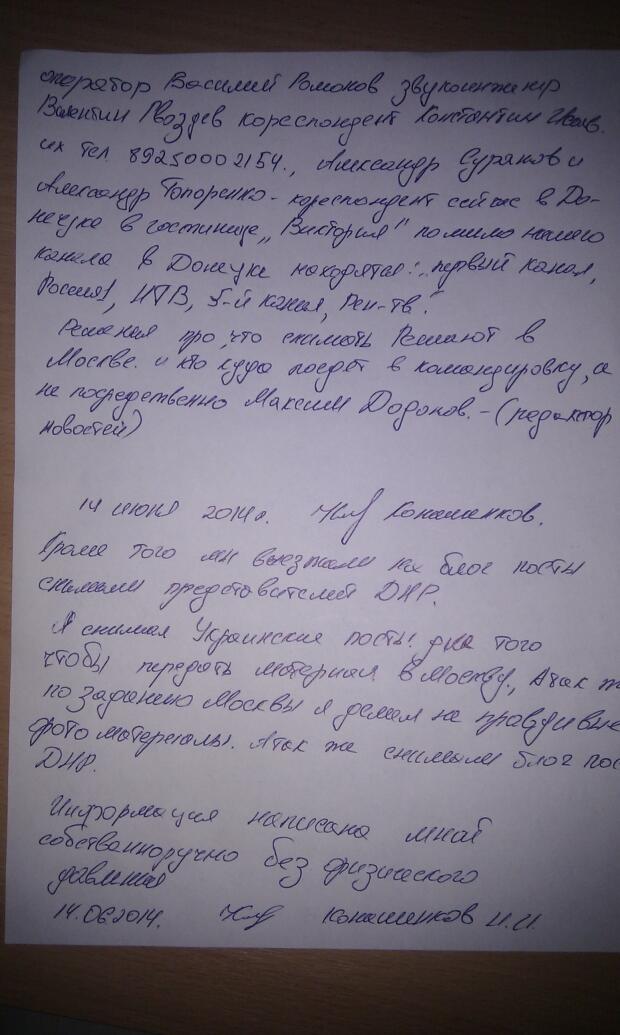 оператор Василий Романов звукоинженер
Валентин Гвоздев кореспондент Константин
их тел. 89250002154., Александр Суранов и
Александр Топоренко - кореспондент сейчас в До-
нецке в гостинице „Виктория" помимо нашего
канала в Донецке находятся: „первый канал,
Россия1, НТВ, 5-й канал, Рен-тв".
Решения про, что снимать Решают в
Москве. и кто куда поедет в командировку, а
не посредственно Максим Додонов. - (редактор
новостей)
14 июня 2014г. Конашенков.
Кроме того мы выезжали на блог посты
снимали представителей ДНР.
Я снимал Украинские посты! для того
чтобы передать материал в Москву., А так ж
по заданию Москвы я делал не правдивые
фото матереалы. А так же снимали блог пос
ДНР.
Информация написана мной
собственноручно без физического
давления
14.06.2014. Конашенков И.И.